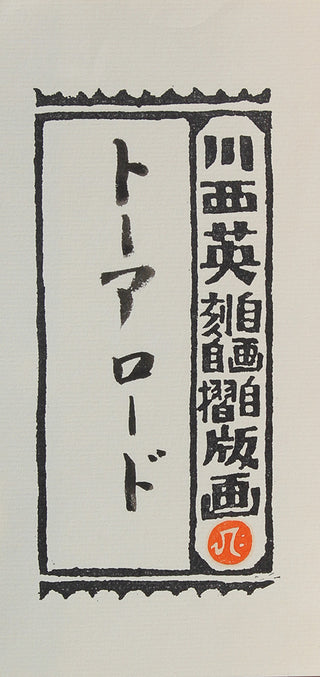 川西英自画自刻自摺版画
トーアロード